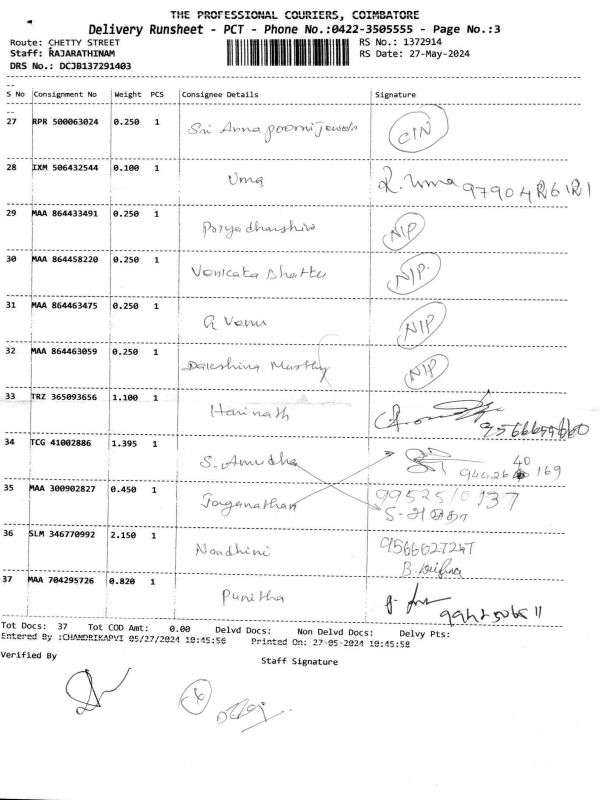 THE PROFESSIONAL COURIERS, COIMBATORE
Delivery Runsheet - PCT - Phone No.:0422-3505555 - Page No.:3
Route: CHETTY STREET RS No.: 1372914
Staff: RAJARATHINAM RS Date: 27-May-2024
DRS No.: DCJB137291403
S No Consignment No Weight PCS Consignee Details Signature
27 RPR 500063024 0.250 1 Sri Anna poorni Jewels CIN
28 IXM 506432544 0.100 1 Uma R. Uma
29 MAA 864433491 0.250 1 Priyadharshini NIP
30 MAA 864458220 0.250 1 Venkata Bhattu NIP
31 MAA 864463475 0.250 1 G Venu NIP
32 MAA 864463059 0.250 1 Dakshina Murthy NIP
33 TRZ 365093656 1.100 1 Harinath
34 TCG 41002886 1.395 1 S. Amudha
40
169
35 MAA 300902827 0.450 1 Jaganathan 9952510137
S-அமுதா
36 SLM 346770992 2.150 1 Nandhini 9566627247
37 MAA 704295726 0.820 1 Punitha
Tot Docs: 37 Tot COD Amt: 0.00 Delvd Docs: Non Delvd Docs: Delvy Pts:
Entered By :CHANDRIKAPVI 05/27/2024 10:45:56 Printed On: 27-05-2024 10:45:58
Verified By Staff Signature